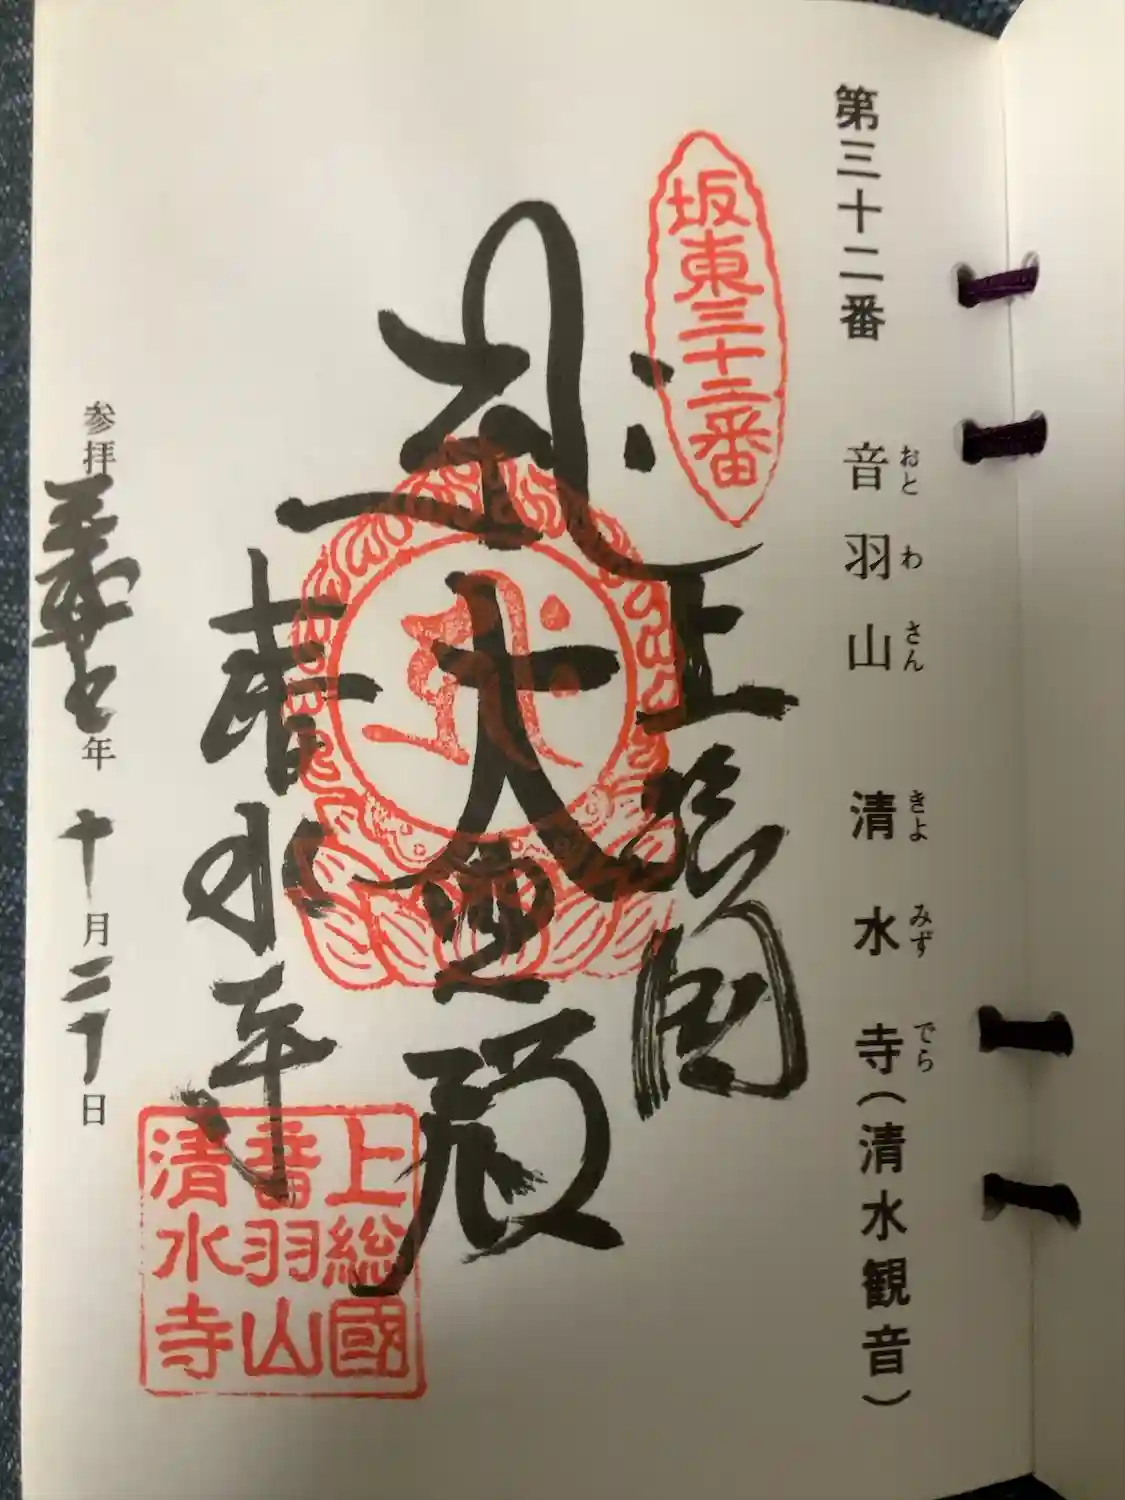 第三十二番 音羽山 清水寺(清水観音)
おとわさん きよみずでら
坂東三十二番
上総国
大悲殿
清水寺
上総國
音羽山
清水寺
参拝 年 十月二十日